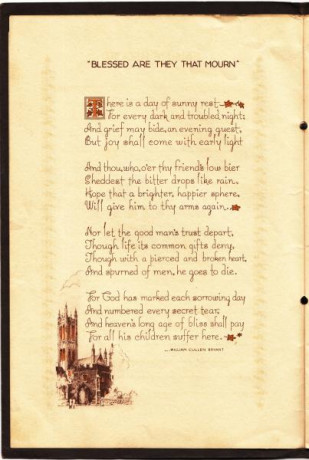 "BLESSED ARE THEY THAT MOURN"
There is a day of sunny rest
For every dark and troubled night;
And grief may bide, an evening guest,
But joy shall come with early light
And thou, who, o'er thy friend's low bier
Sheddest the bitter drops like rain,
Hope that a brighter, happier sphere,
Will give him to thy arms again.
Nor let the good man's trust depart,
Though life its common gifts deny,
Though with a pierced and broken heart,
And spurned of men, he goes to die.
For God has marked each sorrowing day
And numbered every secret tear,
And heaven's long age of bliss shall pay
For all his children suffer here.
—WILLIAM CULLEN BRYANT